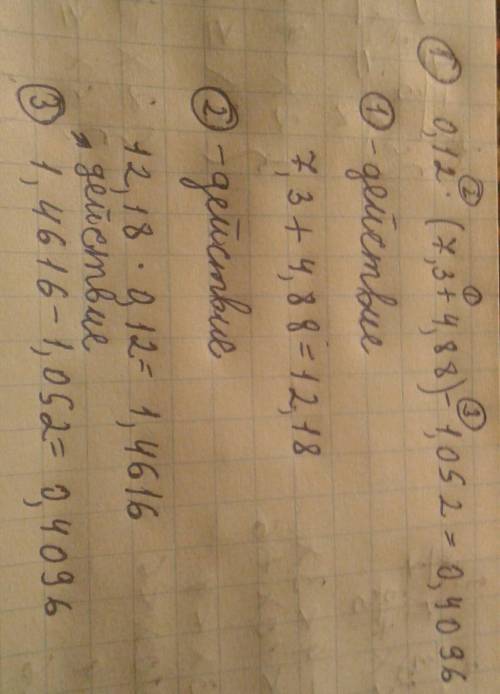 ① 0,12 ②· (7,3 ①+ 4,88) ③- 1,052 = 0,4096
① - действие
7,3 + 4,88 = 12,18
② - действие
12,18 · 0,12 = 1,4616
действие
③ 1,4616 - 1,052 = 0,4096